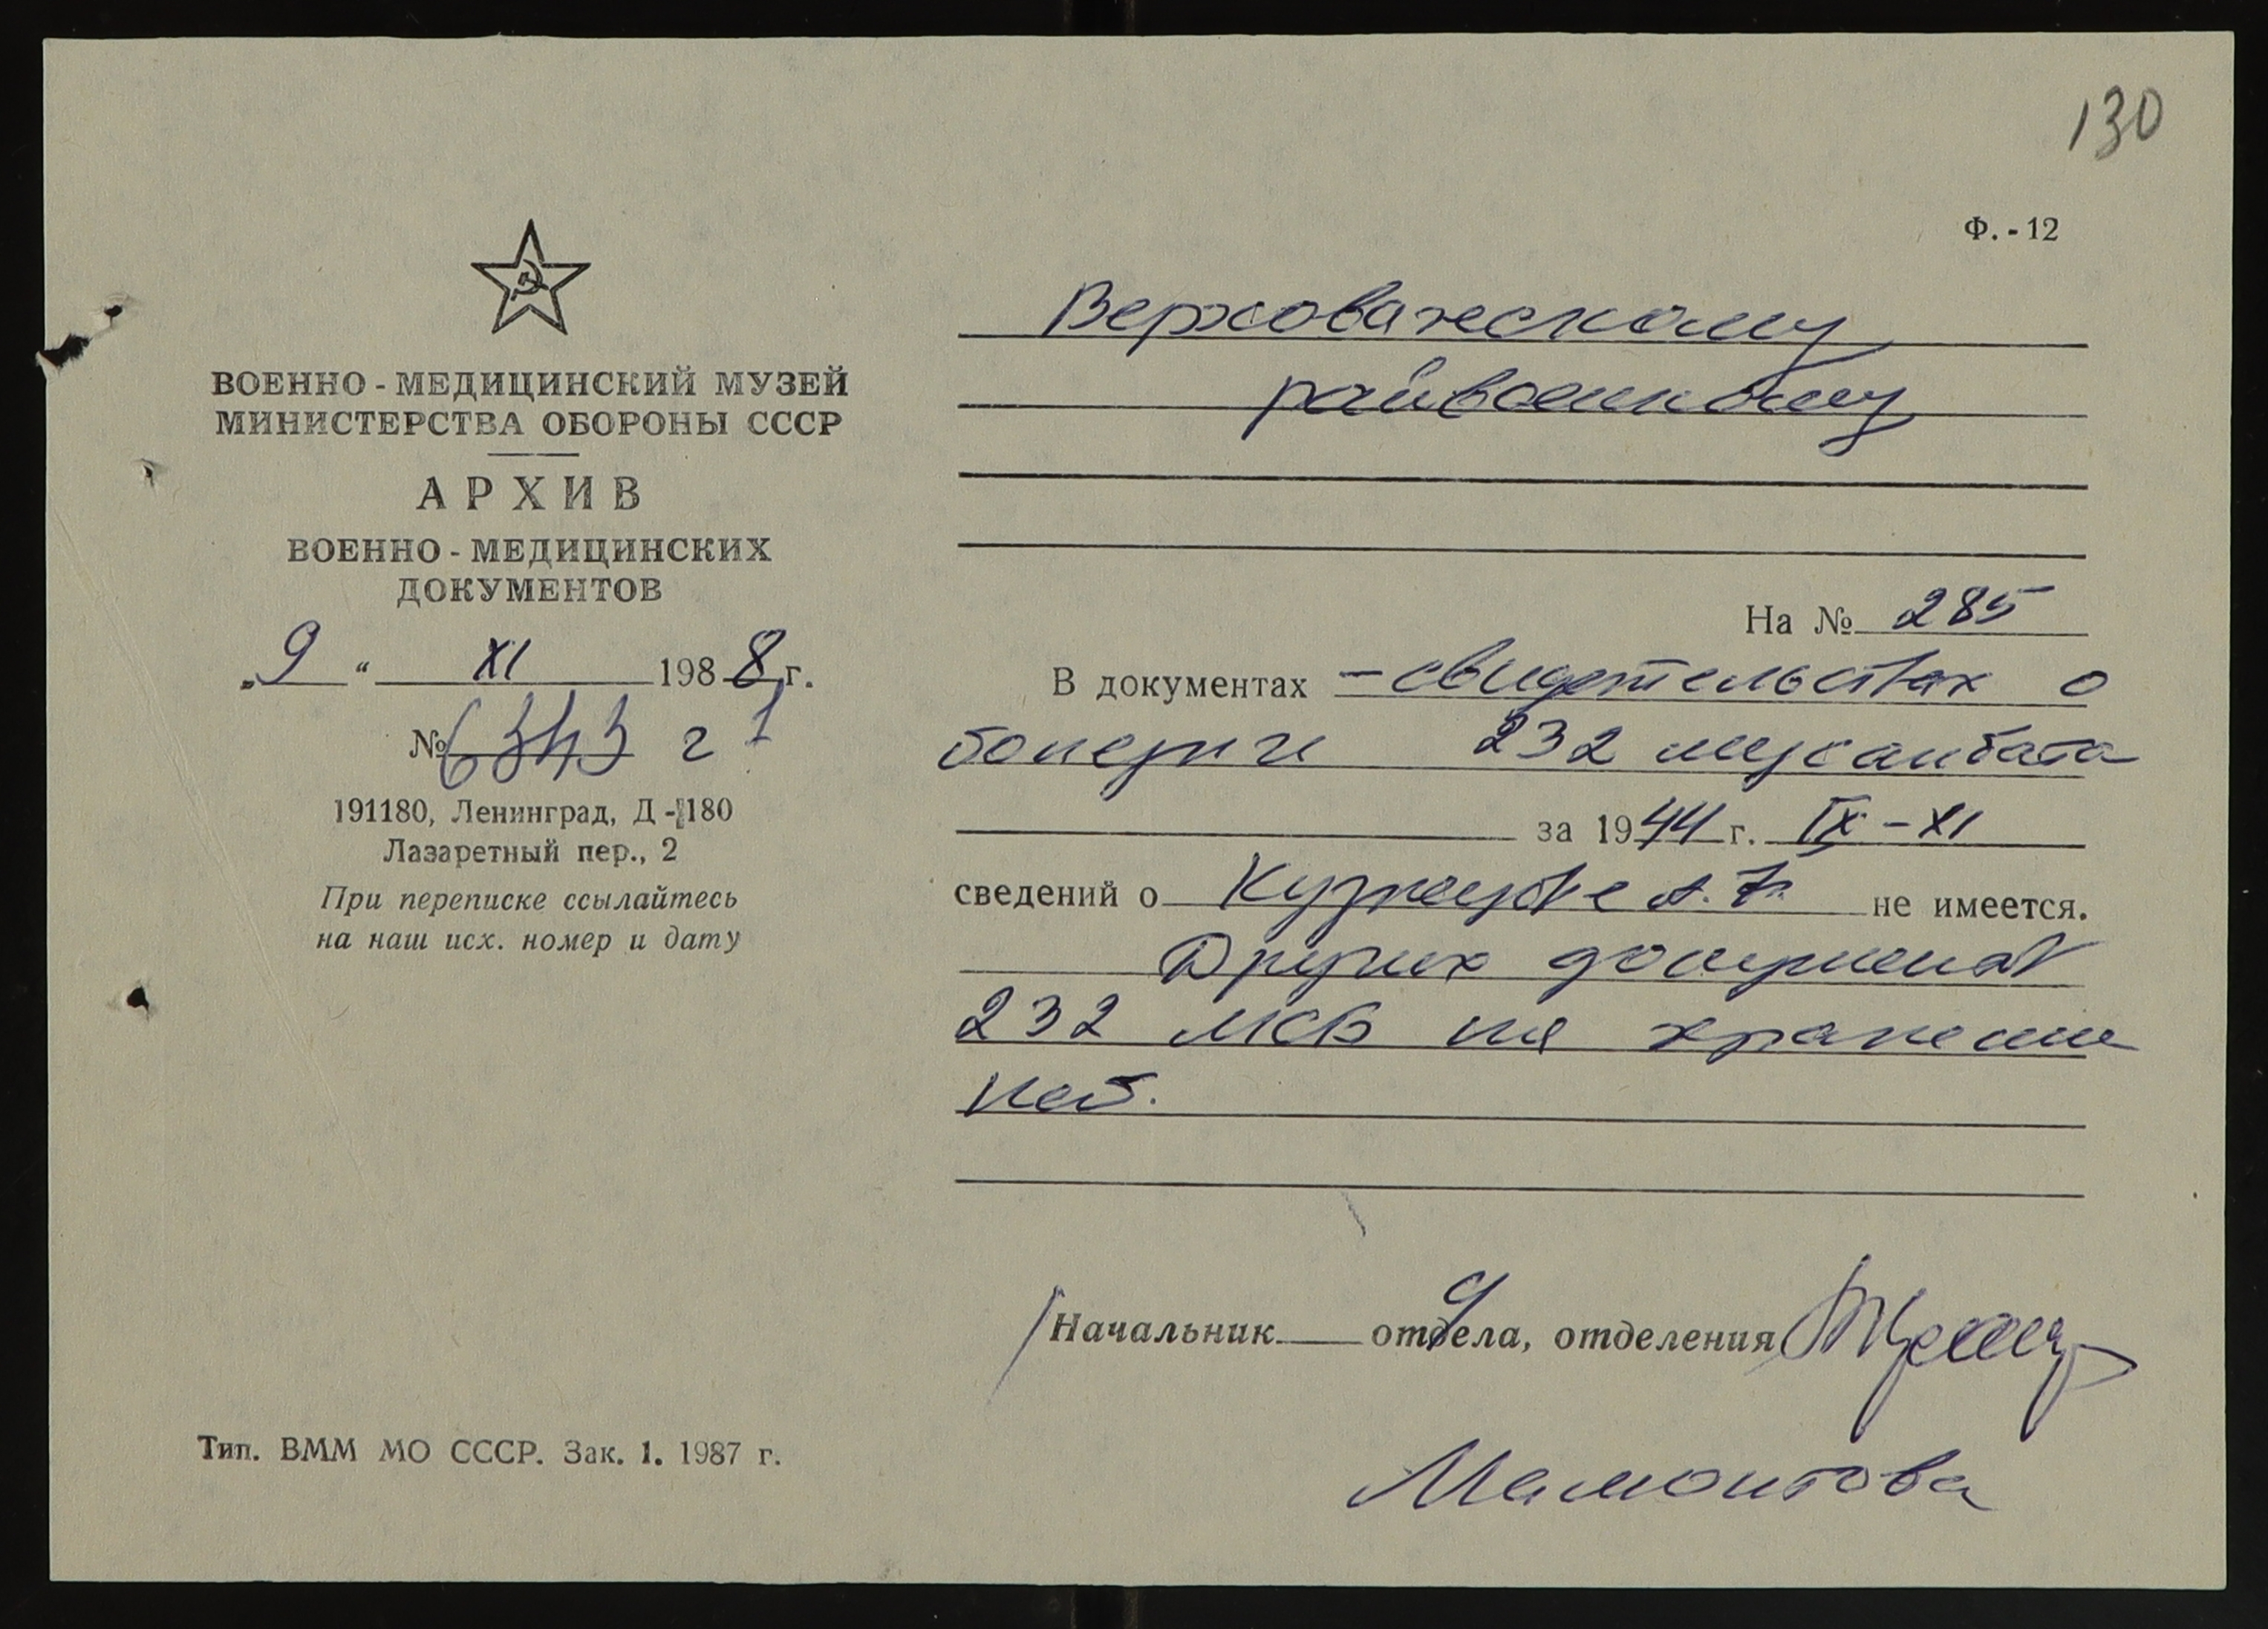 130
Ф. - 12
ВОЕННО - МЕДИЦИНСКИЙ МУЗЕЙ
МИНИСТЕРСТВА ОБОРОНЫ СССР
АРХИВ
ВОЕННО - МЕДИЦИНСКИХ
ДОКУМЕНТОВ
„ 9 “ XI 1988 г.
№
191180, Ленинград, Д - 180
Лазаретный пер., 2
При переписке ссылайтесь
на наш исх. номер и дату
Тип. ВММ МО СССР. Зак. 1. 1987 г.
Верховажскому
райвоенкому
На № 285
В документах - свидетельствах о
болезни 232 медсанбата
за 1944 г. IX - XI
сведений о Кузнецове А. не имеется.
Других документов
232 МСБ на хранении
нет.
Начальник отдела, отделения
Мамонтова